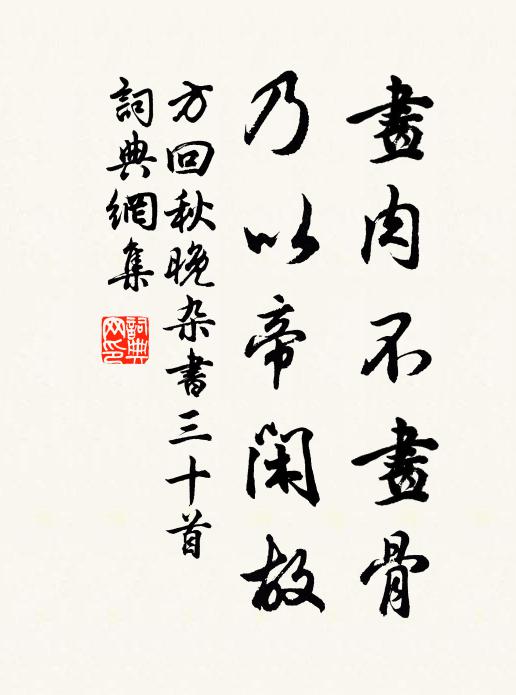 畫肉不畫骨
乃以帝閑故
方回秋晚杂書三十首
詞典網集
詞典
网印